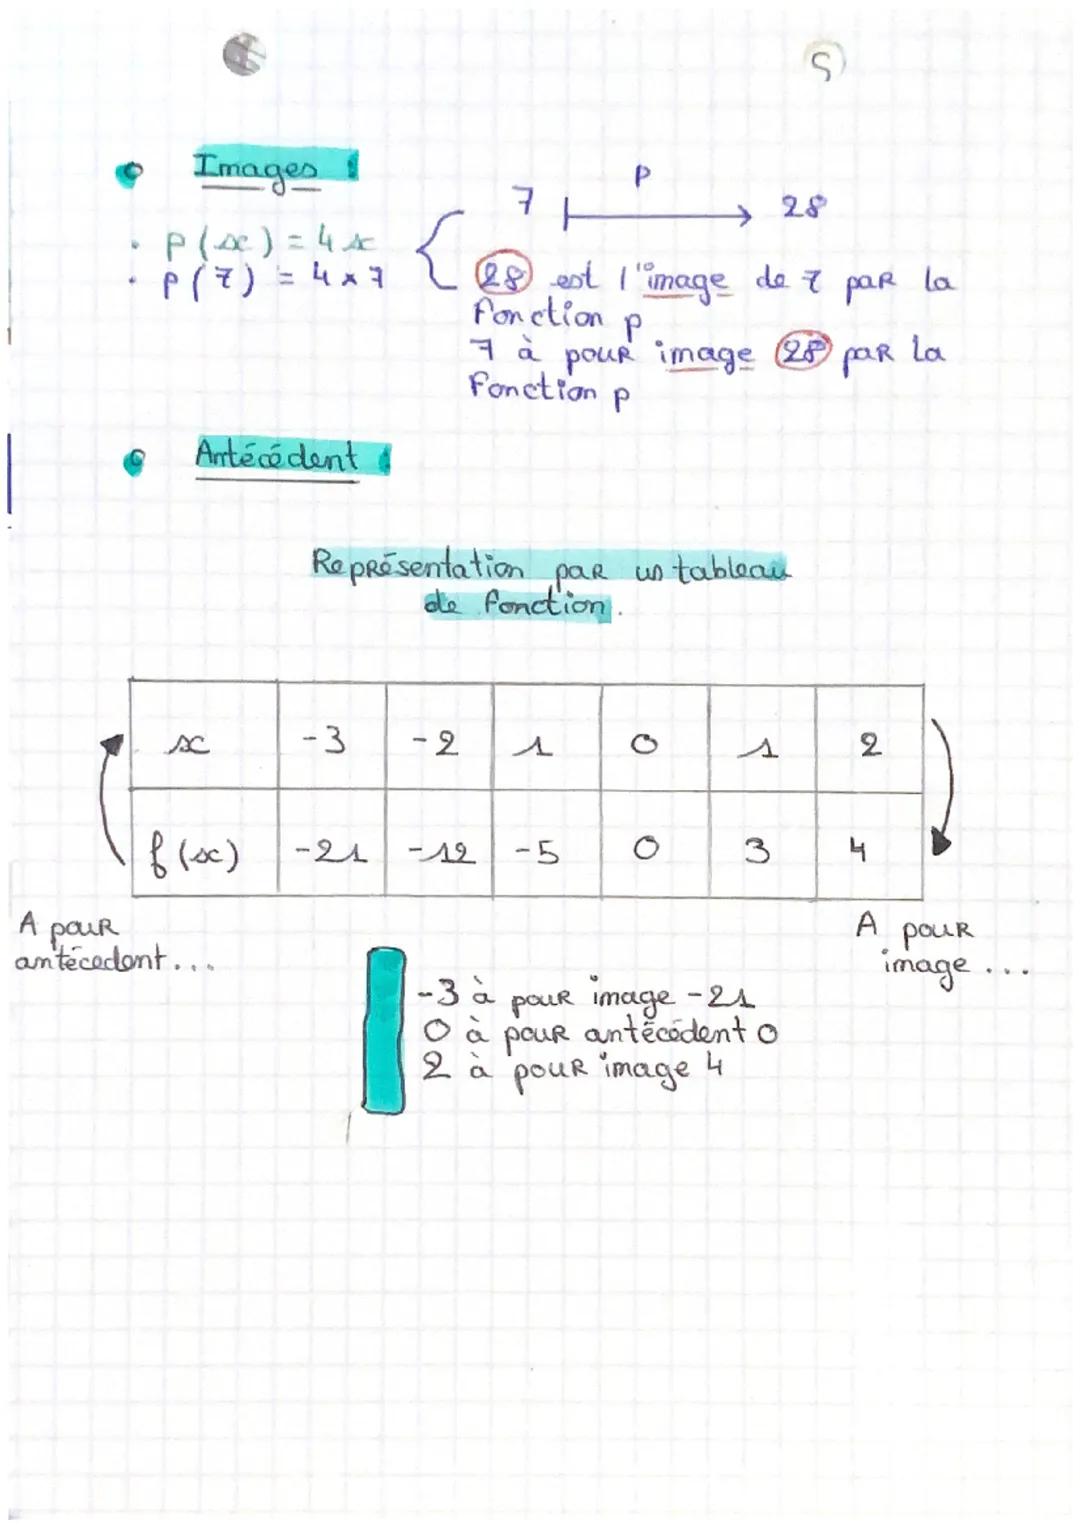 5
Images :
7 p 28
. p(x) = 4x
. p(7) = 4x7
28 est l'image de 7 par la
fonction p
7 à pour image 28 par la
fonction p
Antécédent :
Représentation par un tableau
de fonction.
x -3 -2 1 0 1 2
f(x) -21 -12 -5 0 3 4
A pour
antécedent...
A pour
image...
-3 à pour image -21
0 à pour antécédent 0
2 à pour image 4